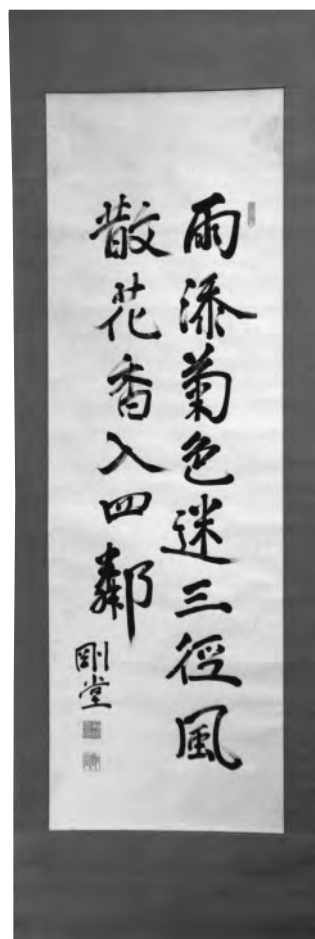 雨添菊色迷三徑風
散花香入四鄰
剛堂